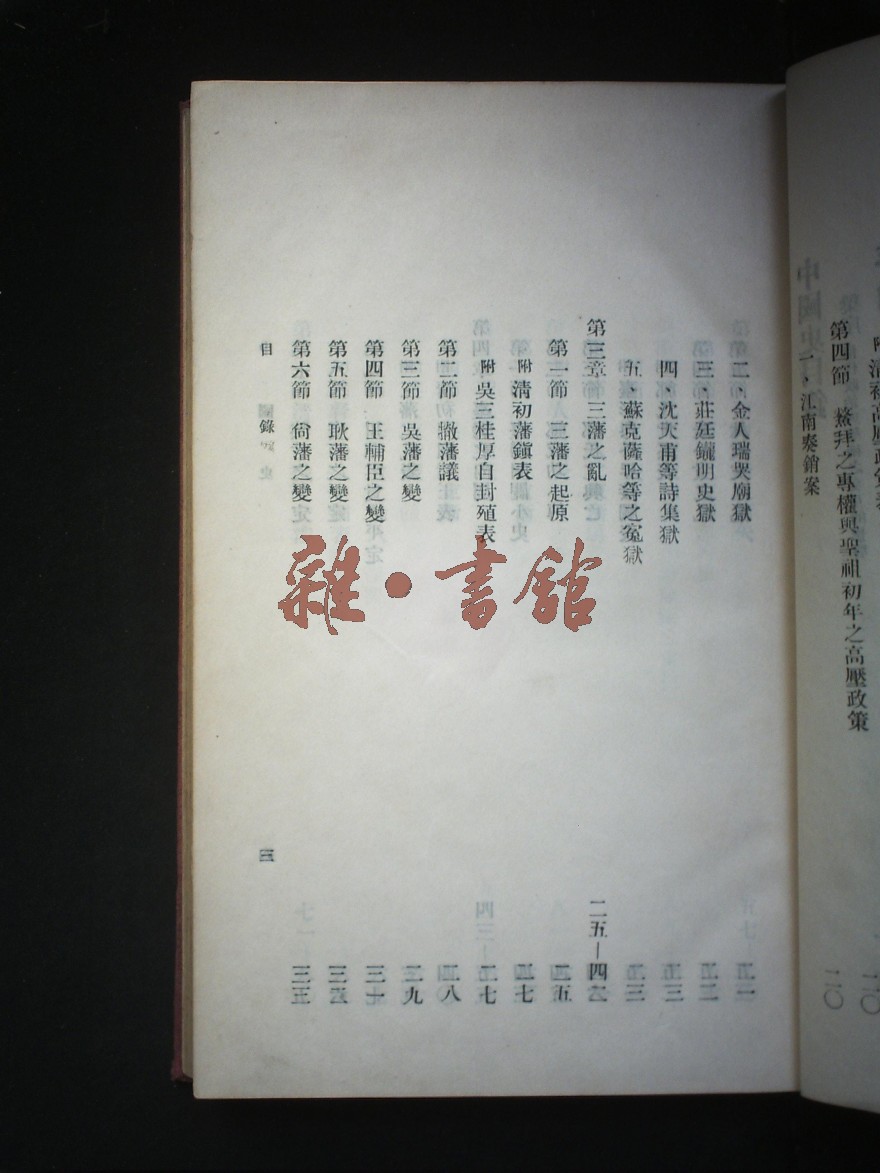 附 清初高壓政策表
第四節 鰲拜之專權與聖祖初年之高壓政策 二〇
一、江南奏銷案 二〇
二、金人瑞哭廟獄 二一
三、莊廷鑨明史獄 二二
四、沈天甫等詩集獄 二三
五、蘇克薩哈等之冤獄 二三
第三章 三藩之亂 二五—四二
第一節 三藩之起原 二五
附 清初藩鎮表 二七
附 吳三桂厚自封殖表 二七
第二節 撤藩議 二八
第三節 吳藩之變 二九
第四節 王輔臣之變 三一
第五節 耿藩之變 三二
第六節 尙藩之變 三三
目 錄
三
雜·書館